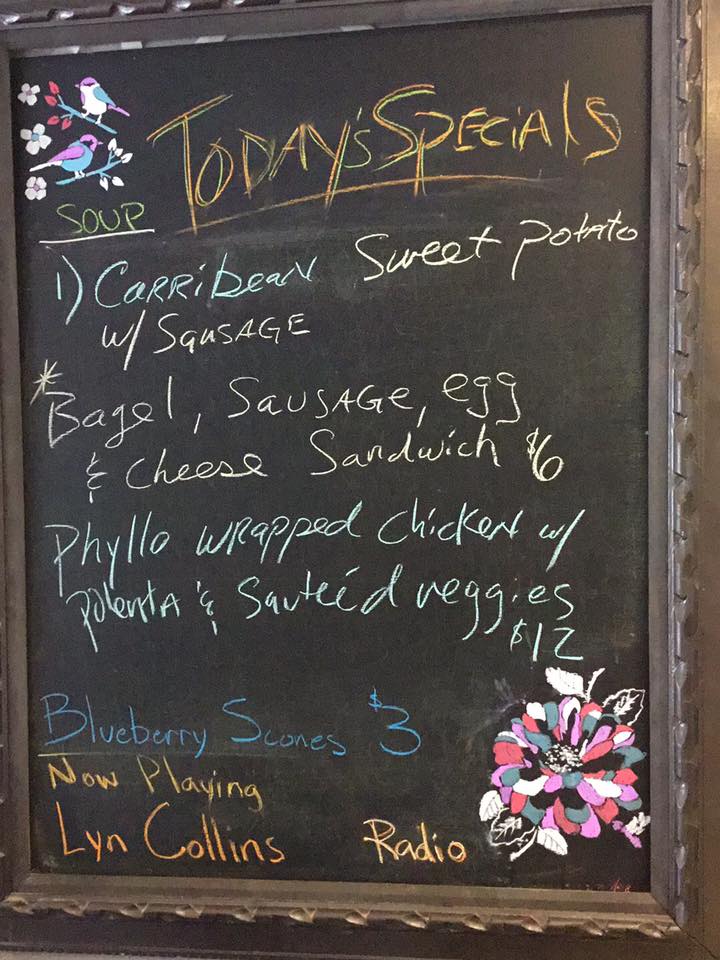 TODAY'S SPECIALS
SOUP
1) CARRibean Sweet Potato
w/ SAUSAGE
* Bagel, SAUSAGE, egg
& Cheese Sandwich $6
Phyllo wrapped chicken w/
polenta & Sauteéd veggies
$12
Blueberry Scones $3
Now Playing
Lyn Collins Radio